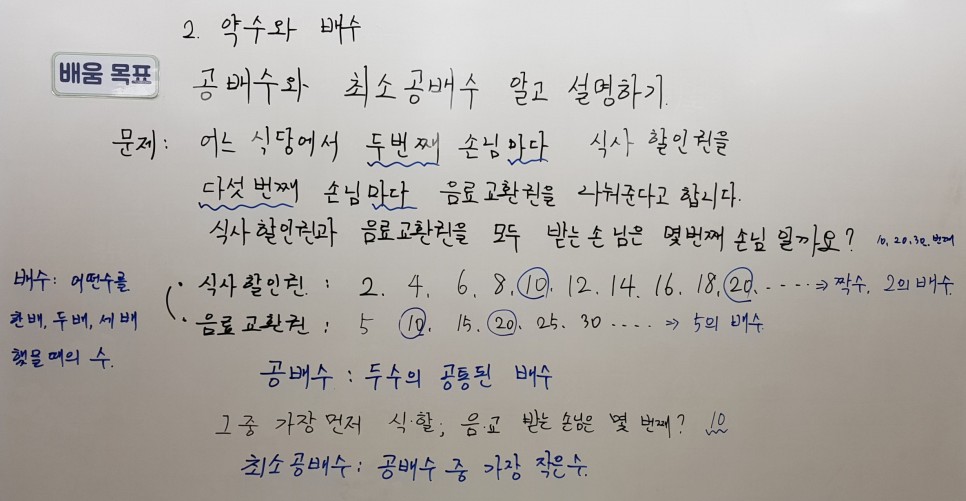 2. 약수와 배수
배움 목표
공배수와 최소공배수 알고 설명하기.
문제: 어느 식당에서 두번째 손님마다 식사 할인권을
다섯 번째 손님마다 음료교환권을 나눠준다고 합니다.
식사할인권과 음료교환권을 모두 받는 손님은 몇번째 손님일까요? 10, 20, 30, 번째
배수: 어떤수를
한배, 두배, 세배
했을때의 수.
· 식사할인권 : 2. 4. 6. 8. 10. 12. 14. 16. 18. 20. ···· ⇒ 짝수, 2의 배수.
· 음료교환권 : 5 10. 15. 20. 25. 30 ···· ⇒ 5의 배수
공배수 : 두수의 공통된 배수
그중 가장먼저 식·할, 음·교 받는손님은 몇 번째? 10
최소공배수 : 공배수 중 가장 작은수.